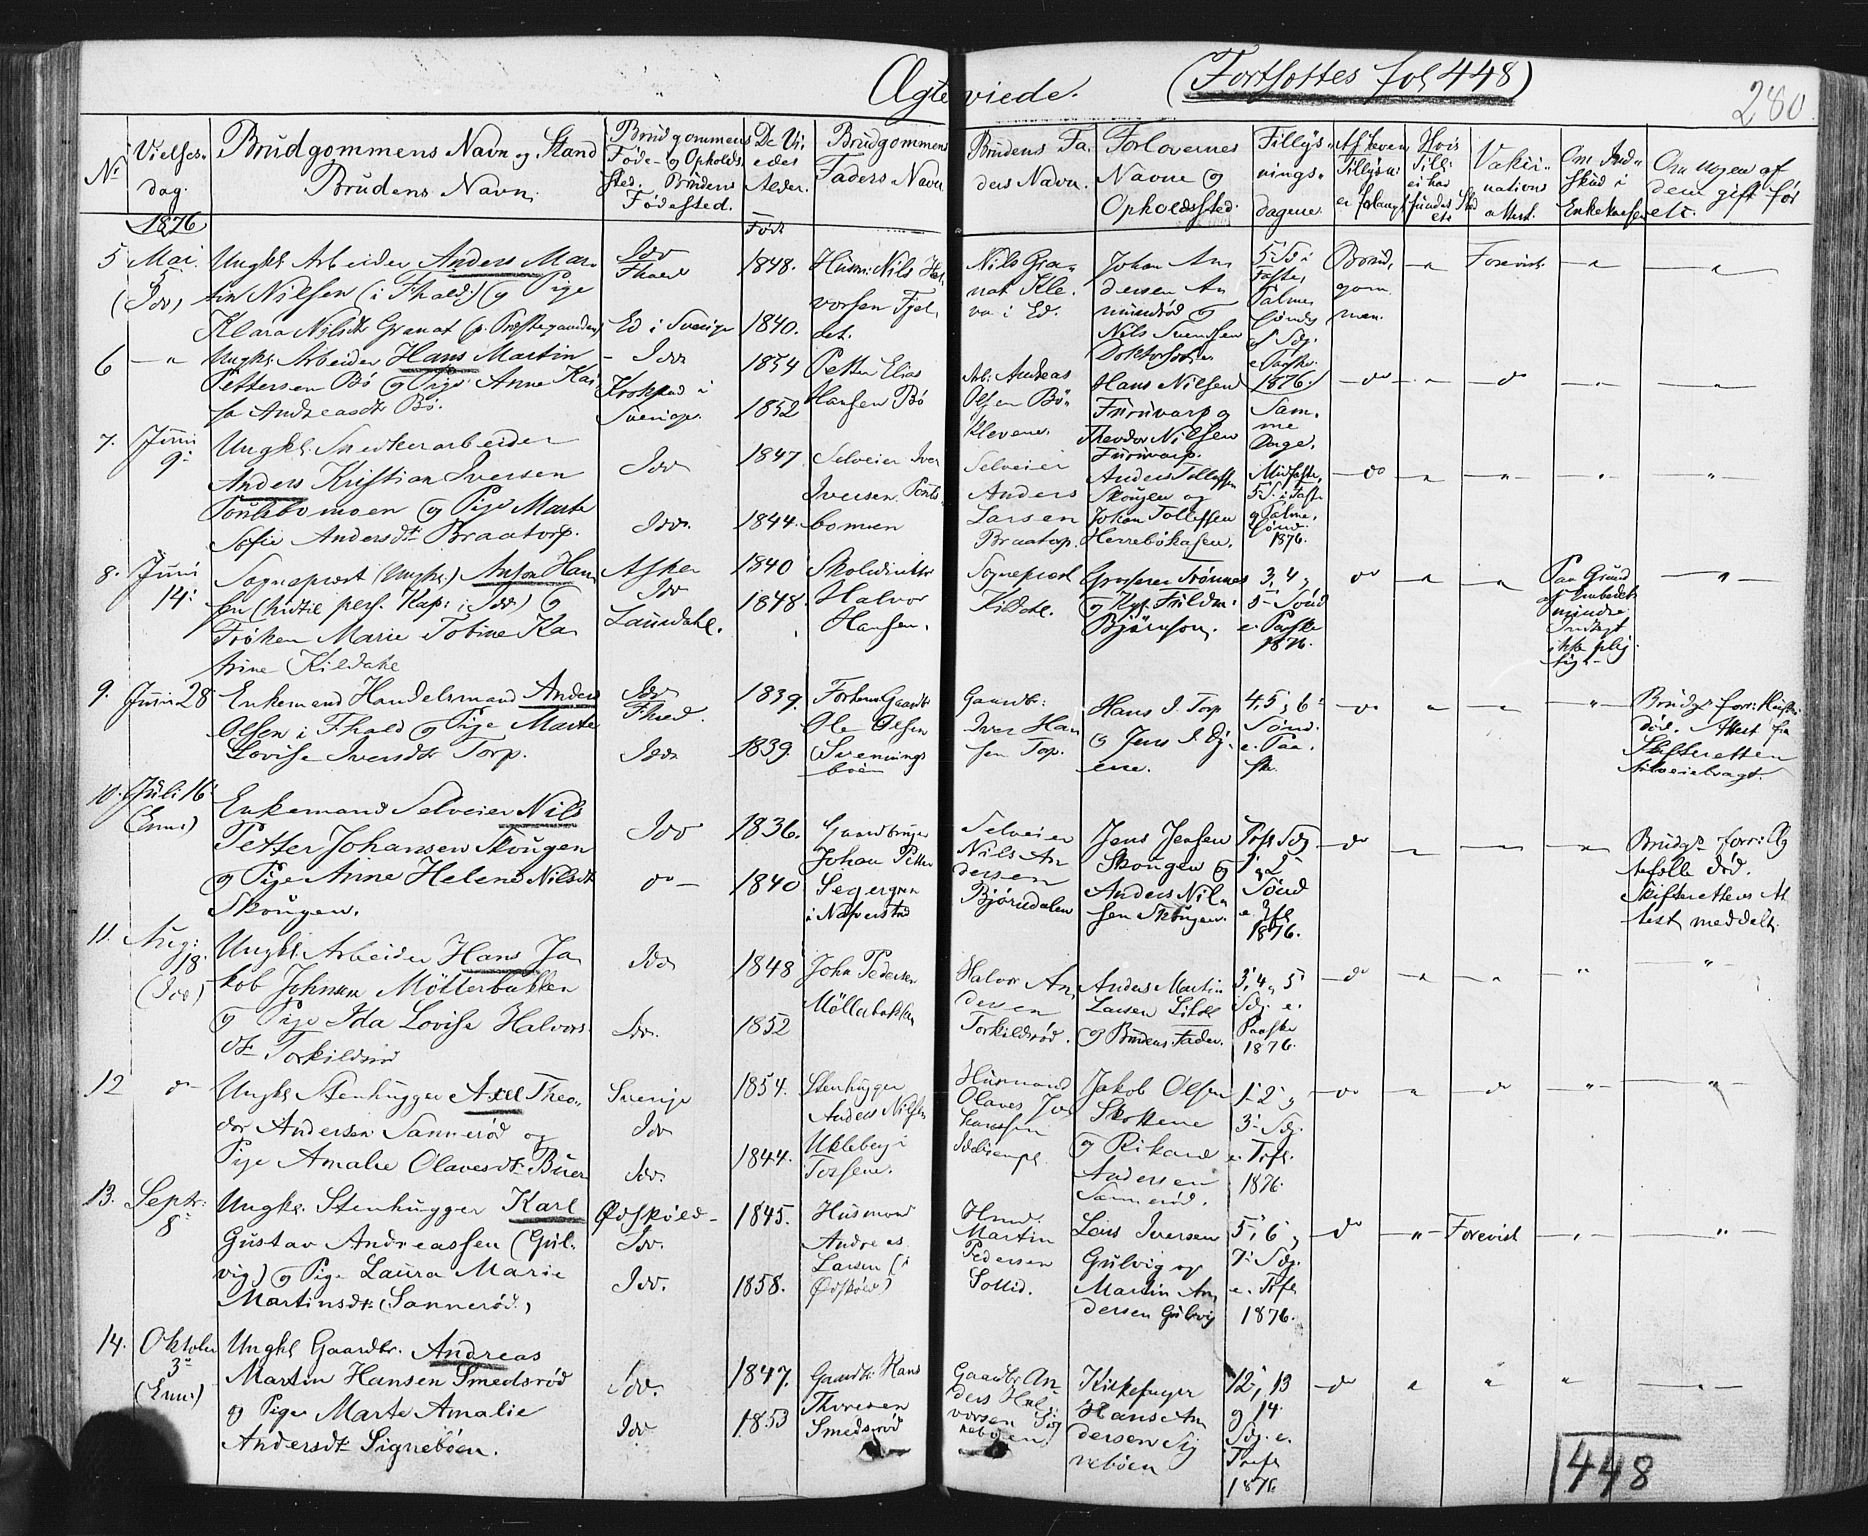 Ægteviede.
(Fortsættes fol 448)
280
No
Vielses-
dag.
Brudgommens Navn og Stand
Brudens Navn.
Brudgommens
Føde- og Opholds
sted. Brudens
Fødested.
De Vi-
edes
Alder.
Brudgommens
Faders Navn
Brudens Fa-
ders Navn.
Forlovernes
Navne og
Opholdssted.
Tillys-
nings-
dagene.
Af hvem
Tillysn:
er forlangt
Hvis
Till:
ei har
fundet Sted
etc
Vakci-
nations
attest.
Om Ind-
skud i
Enkekassen
Om nogen af
dem gift før
etc.
1876
Født
5
Mai
5
(Idd)
Ungkl. Arbeider Anders Mar-
tin Nilsen (i Fhald) og Pige
Klara Nilsdt Granat (p. Præstegaarden)
Idd
Fhald
Ed i Sverige
1848.
1840.
Husm: Nils Hal-
vorsen Fjel-
det.
Nils Gra-
nat Kle-
va i Ed.
Johan An-
dersen An-
mundrød og
Nils Svendsen
5 Sd i
Faste,
Palme
søndag
og Sdg.
e Paaske
1876.
Brud-
gom-
men.
"
Forevist.
"
"
6
"
Ungkl. Arbeider Hans Martin
Pettersen Bø og Pige Anne Kai-
sa Andreasdt Bø.
Idd
Krokstad i
Sverige.
1854
1852
Petter Elias
Hansen Bø
Arb: Andreas
Olsen Bø-
Klevene.
Hans Nilsen
Furuvarp og
Theodor Nilsen
Furuvarp.
Sam-
me
Dage.
do
"
do
"
"
7.
Juni
9
Ungkl. Snedkerarbeider
Anders Kristian Iversen
Poulsbomoen og Pige Marte
Sofie Andersdt Braatorp.
Idd
Idd.
1847
1844.
Selveier Iver
Iversen Pouls-
bomoen
Selveier
Anders
Larsen
Braatorp.
Anders Tollefsen
Skougen og
Johan Tollefsen
Herrebøkasen.
Midfaste,
5 S. i Faste
og Palme-
sønd.
1876.
do
"
"
"
"
8.
Juni
14
Sognepræst (Ungkl.) Anton Han-
sen (hidtil pers. Kap: i Idd) og
Frøken Marie Tobine Ka-
trine Kildahl
Asker
Idd
Laurdahl.
1840
1848.
Skoledirektør
Halvor
Hansen.
Sogneprest
Kildahl.
Grosserer Frønnes
og
Bjørnson.
3, 4 og
5 Sønd
e. Paaske
1876.
do
"
"
Paa Grund
af Embedets
mindre
Indtægt
ikke plig-
tig.
"
9.
Juni 28
Enkemand Handelsmand Anders
Olsen i Fhald og Pige Marte
Lovise Iversdt Torp.
Idd
Fhald.
Idd
1839.
1839.
Forhenv Gaardbr
Ole Olsen
Svenings-
bøen
Gaardbr:
Iver Han-
sen Torp.
Hans I. Torp
og Jens I.
4, 5 og 6
Sønd.
e. Paa-
ske.
do
"
"
"
Brudgs forr: Hustru
død. Attest fra
Skifteretten
tilveiebragt.
10.
Juli 16
(Enni.)
Enkemand Selveier Nils
Petter Johansen Skougen
og Pige Anne Helene Nilsdt
Skougen.
Idd
do
1836.
1840
Gaardbruger
Johan Petter
Segergren
i Nafverstad
Selveier
Nils An-
dersen
Bjørndalen
Jens Jensen
Skougen og
Anders Nil-
sen Skougen.
Tofs Sdg.
1 og 2
Sønd
e Tfs
1876.
do
"
"
"
Brudgs forr: Æg-
tefælle død.
Skifterettens At-
test meddelt.
11.
Aug:
18.
(Idd)
Ungkl. Arbeider Hans Ja-
kob Johnsen Möllerbakken
og Pige Ida Lovise Halvors-
dt Torkildsrød
Idd
Idd.
1848
1852
John Pedersen
Möllerbakken
Halvor An-
dersen
Torkildsrød.
Anders Martin
Larsen Lilhol
og Brudens Fader.
3, 4 og 5
Sdg. e.
Paaske
1876.
do
"
"
"
"
12
do
Ungkl Stenhugger Axel Theo-
dor Andersen Sannerød og
Pige Amalie Olavesdt Buer
Sverige
Idd
Idd.
1854.
1844.
Stenhugger
Anders Nilsen
Ukleberg i
Torsene.
Husmand
Olaves Jo-
hansen
Jakob Olsen
Skottene
og Rikard
Andersen
Sannerød.
1 2 og
3 Sdg.
e. Tfs.
1876.
do
"
do
"
"
13.
Septr:
8
Ungkl. Stenhugger Karl
Gustav Andreassen (Gul-
vig) og Pige Laura Marie
Martinsdt (Sannerød.)
Ødskøld
Idd.
Idd.
1845.
1858.
Husmand
Andreas
Larsen (i
Ødskøld)
Hmd.
Martin
Pedersen
Sollid.
Lars Iversen
Gulvig og
Martin An-
dersen Gulvig
5, 6 og
7 Sdg.
e. Tfs
1876.
do
"
Forevist
"
"
14.
Oktober
3
(Enni.)
Ungkl Gaardbr. Andreas
Martin Hansen Smedsrød
og Pige Marte Amalie
Andersdt Signebøen.
Idd.
Idd
1847.
1853
Gaardbr Hans
Thoresen
Smedsrød
Gaardbr An-
ders Hal-
vorsen Sig-
nebøen.
Kirkesanger
Hans An-
dersen Sig-
nebøen
12, 13
og 14
Sdg. e.
Trefs
1876
do
"
"
"
448